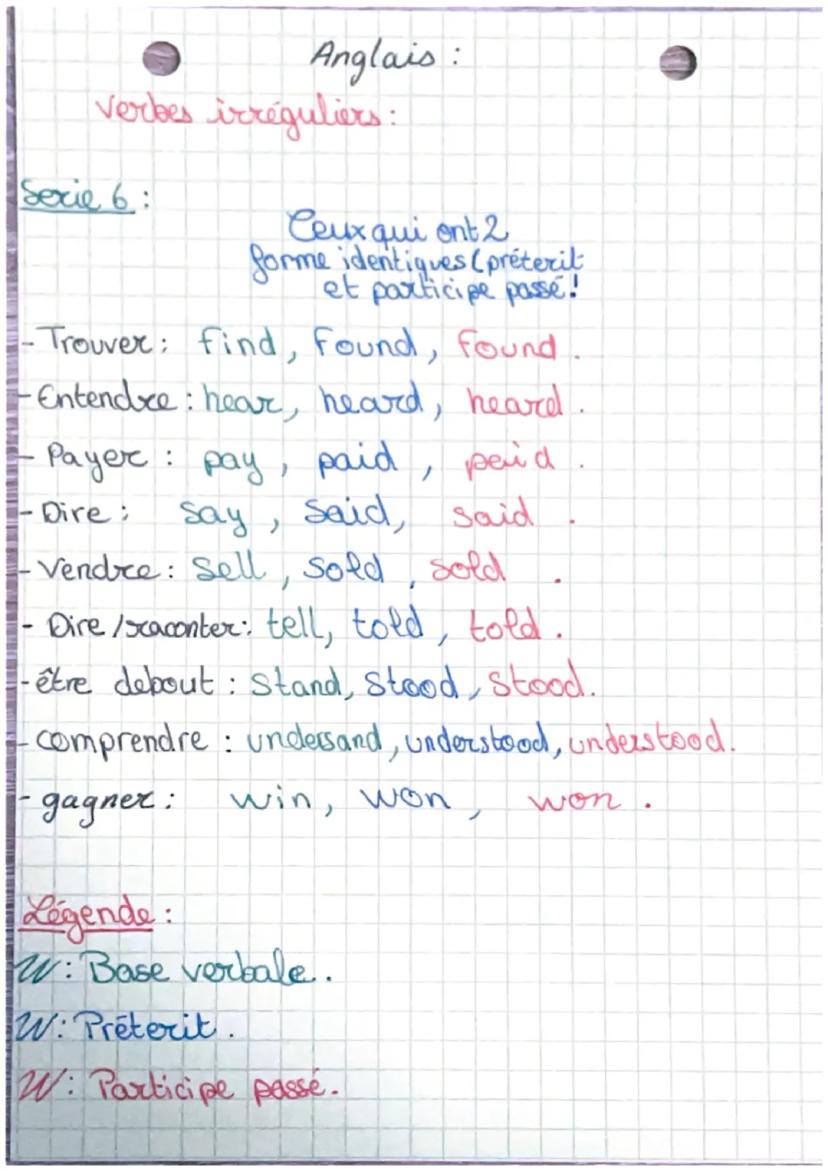 Anglais :
Verbes irréguliers :
Serie 6 :
Ceux qui ont 2
forme identiques (préterit
et participe passé !
- Trouver : find, found, found.
- Entendre : hear, heard, heard.
- Payer : pay, paid, paid.
- Dire : say, said, said.
- Vendre : sell, sold, sold.
- Dire / raconter : tell, told, told.
- être debout : stand, stood, stood.
- comprendre : undersand, understood, understood.
- gagner : win, won, won.
Légende :
W : Base verbale.
W : Préterit.
W : Participe passé.